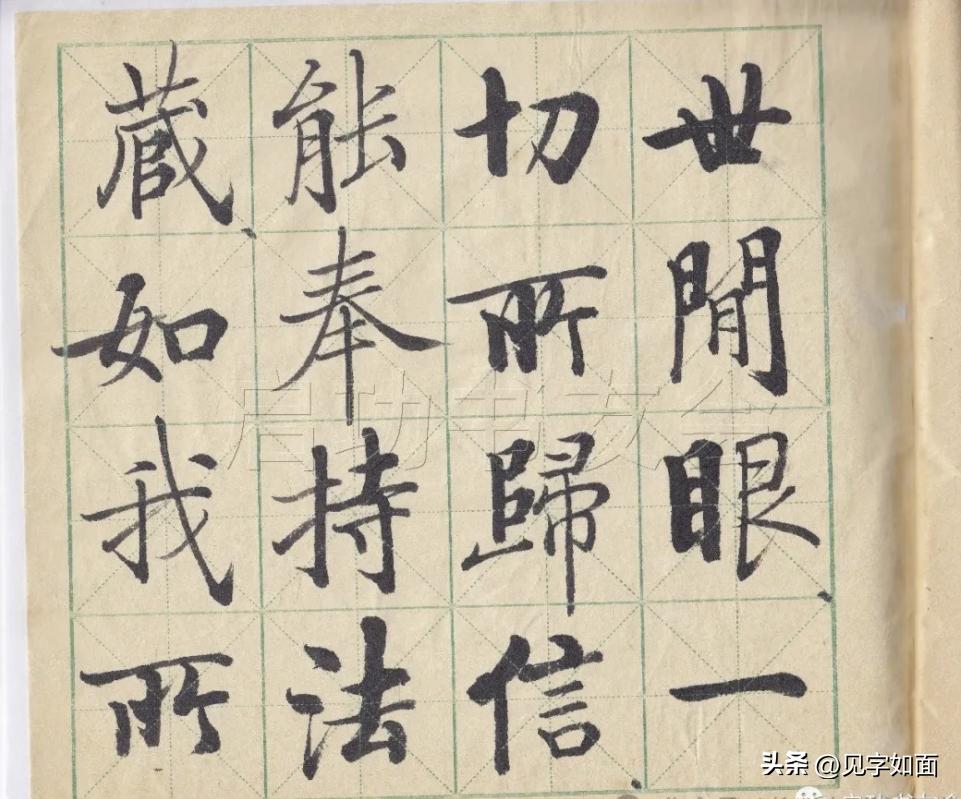 世間眼一
切所歸信
能奉持法
藏如我所
启功书友会
头条 @见字如面